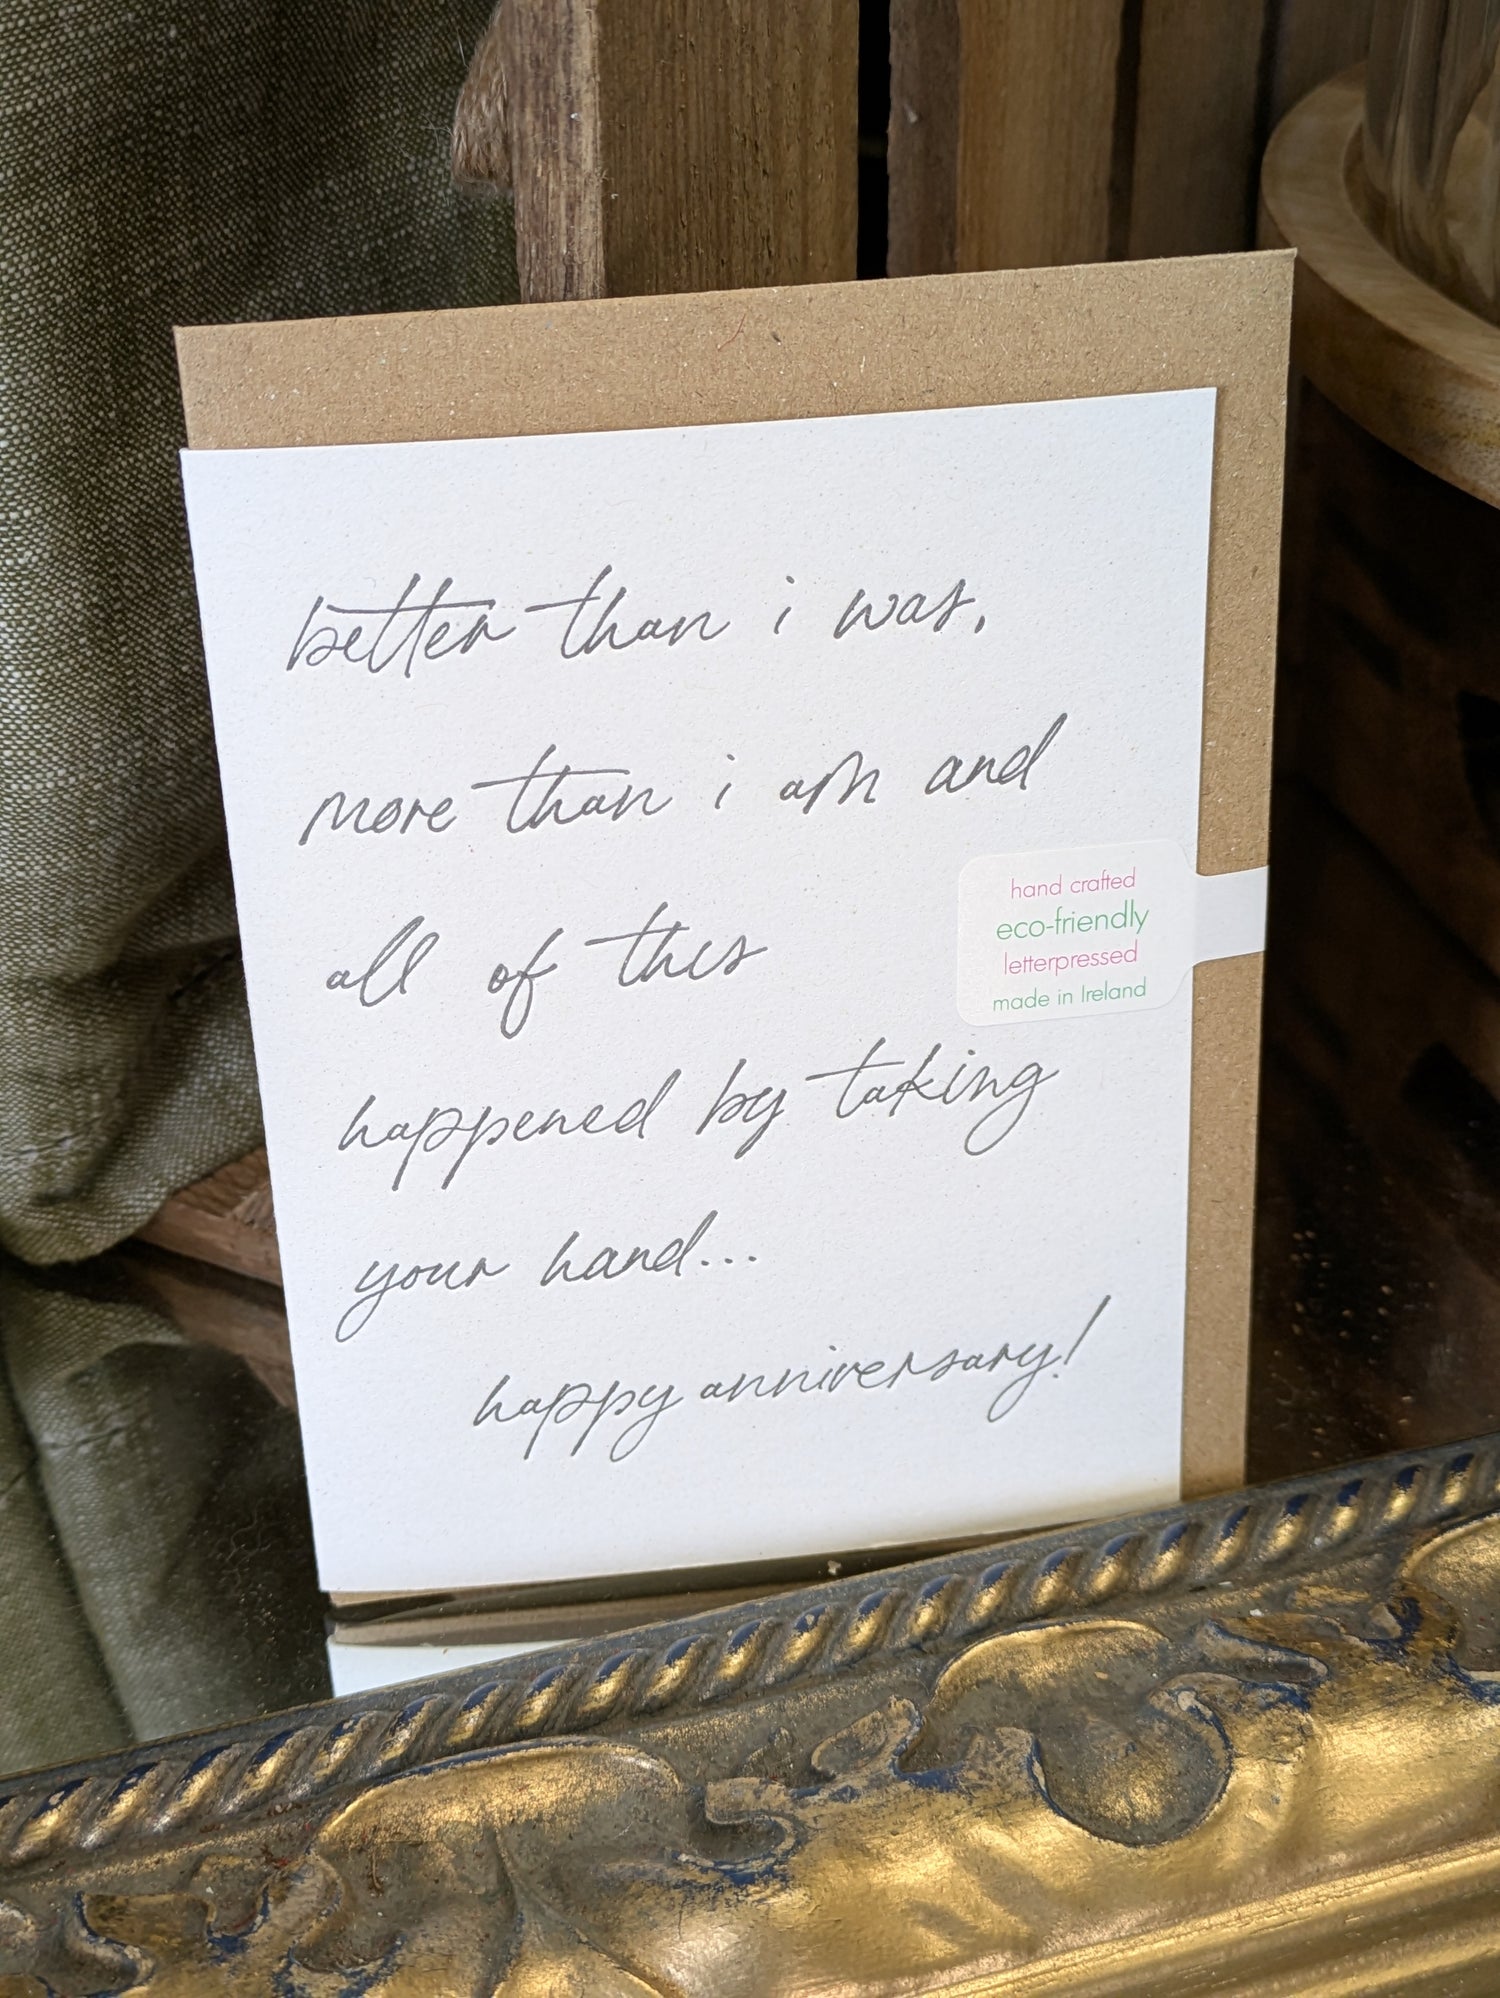 better than i was,
more than i am and
all of this
happened by taking
your hand...
happy anniversary!
hand crafted
eco-friendly
letterpressed
made in Ireland